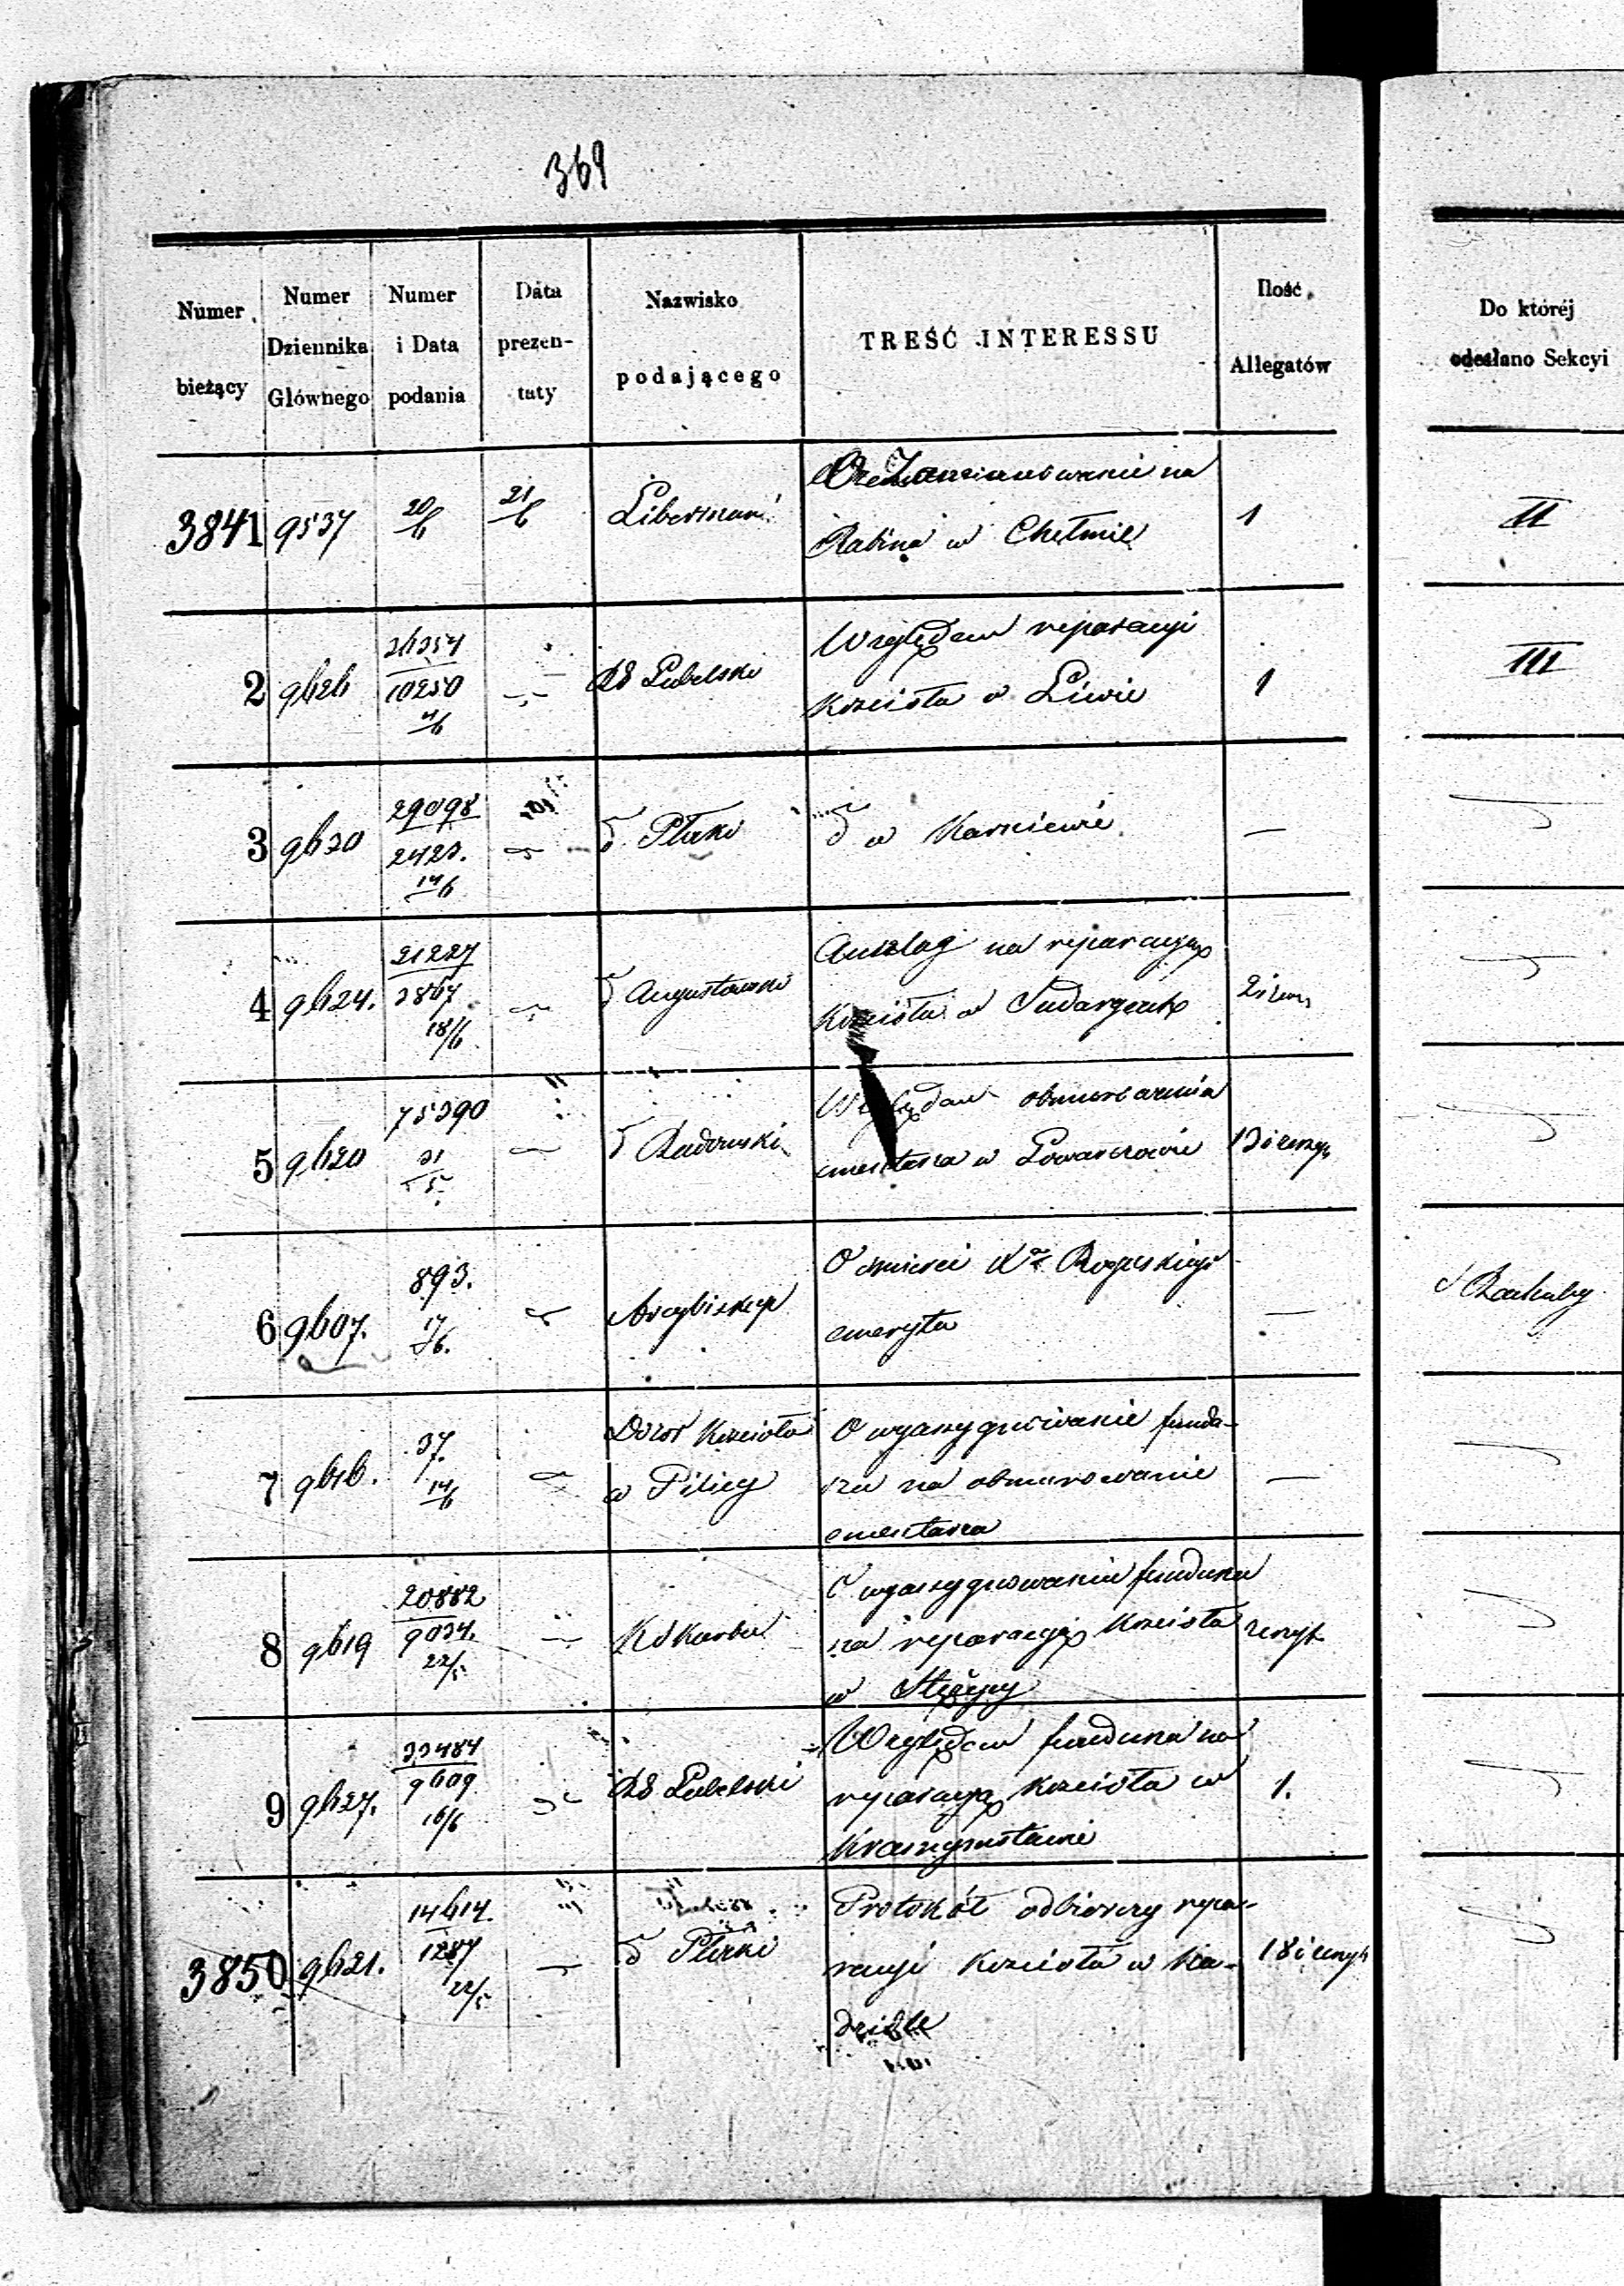 369
Numer bieżący | Numer Dziennika Głównego | Numer i Data podania | Data prezentaty | Nazwisko podającego | TREŚĆ INTERESSU | Ilość Allegatów | Do któréj odesłano Sekcyi
3841 | 9537 | 20/6 | 21/6 | Liberman | 
Rabina w Chełmie | 1 | II
2 | 9626 | 10250 | Lubelski | Względem reparacyi
Kościoła w Liwie | 1 | III
3 | 9630 | 29098 | 2423. 14/6 | Płocki | w Karniewie | —
4 | 9624. | 21227 | 18/6 | Augustowski | Anszlag na reparacyą
Kościoła w Sudargach
5 | 9620 | 75390 | 31/5 | Radomski | Względem obmurowania
cmentarza w
6 | 9607. | 893. 17/6. | Arcybiskup | O śmierci
emeryta | —
7 | 9616. | 37. 14/6 | Dozór Kościoła
w Pilicy | O wyasygnowanie fundu-
szu na obmurowanie
cmentarza | —
8 | 9619 | 20882 | 9034. 22/5 | K S Karbu | O wyasygnowanie funduszu
na reparacyą Kościoła
w Stężycy
9 | 9627. | 33484 | 9609 16/6 | Lubelski | Względem funduszu na
reparacyą Kościoła w
Krasnymstawie | 1.
3850 | 9621. | 14614. | 1287 22/5 | Płocki | Protokół odbiorczy repa-
racyi Kościoła w Ka-
dzidle